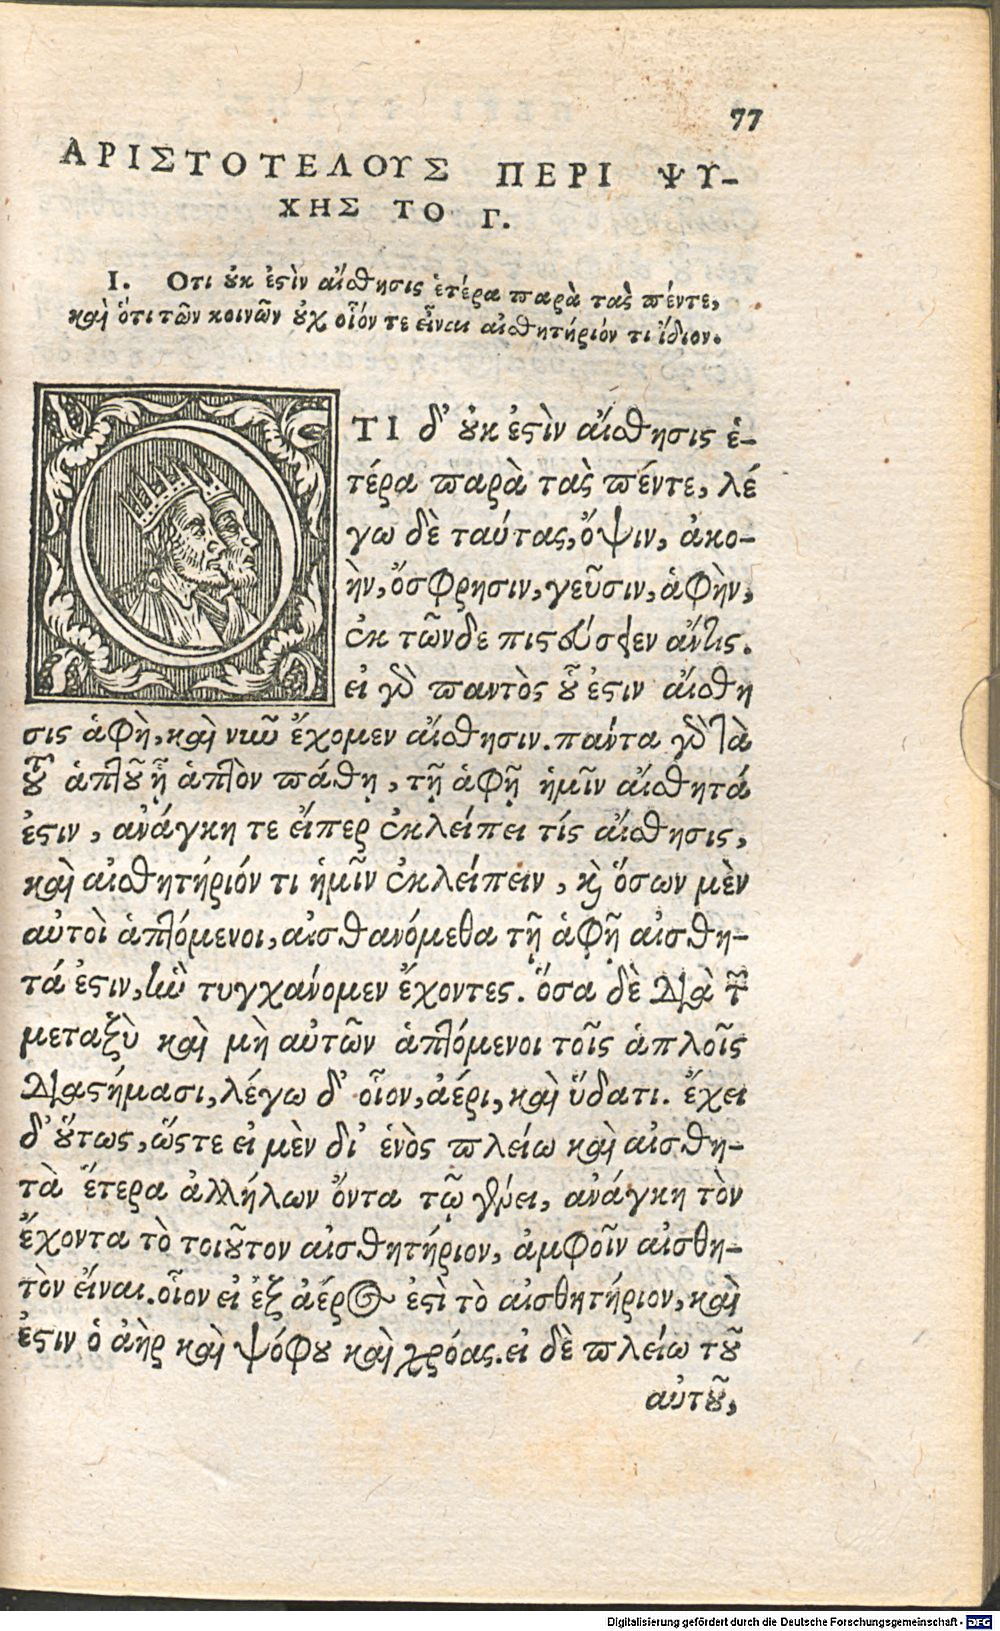 77
ΑΡΙΣΤΟΤΕΛΟΥΣ ΠΕΡΙ ΨΥ-
ΧΗΣ ΤΟ Γ.
I. Οτι ȣκ ἐϛὶν αἴσθησις ἑτέρα παρὰ τὰς πέντε,
καὶ ὅτι τῶν κοινῶν ȣχ οἷόν τε εἶναι αἰσθητήριόν τι ἴδιον.
ΟΤΙ δ' ȣκ ἐϛὶν αἴσθησις ἑ-
τέρα παρὰ τὰς πέντε, λέ
γω δὲ ταύτας, ὄψιν, ἀκο-
ὴν, ὄσφρησιν, γεῦσιν, ἁφὴν,
ἐκ τῶνδε πιστεύσειεν ἄν τις.
εἰ γὸ παντὸς ȣ͗ ἐϛιν αἴσθη
σις ἁφὴ, καὶ νιῦ ἔχομεν αἴσθησιν. πάντα γὸ τὰ
τȣ͂ ἁπτȣ͂ ᾗ ἁπτὸν πάθη, τῇ ἁφῇ ἡμῖν αἰσθητά
ἐϛιν, ἀνάγκη τε εἴπερ ἐκλείπει τίς αἴσθησις,
καὶ αἰσθητήριόν τι ἡμῖν ἐκλείπειν, κὶ ὅσων μὲν
αὐτοὶ ἁπτόμενοι, αἰσθανόμεθα τῇ ἁφῇ αἰσθη-
τά ἐϛιν, ἣν τυγχάνομεν ἔχοντες. ὅσα δὲ διὰ τῶν
μεταξὺ καὶ μὴ αὐτῶν ἁπτόμενοι τοῖς ἁπλοῖς
διαϛήμασι, λέγω δ' οἷον, ἀέρι, καὶ ὕδατι. ἔχει
δ' ȣ͗́τως, ὥϛτε εἰ μὲν δι' ἑνὸς πλείω καὶ αἰσθη-
τὰ ἕτερα ἀλλήλων ὄντα τῷ γένει, ἀνάγκη τὸν
ἔχοντα τὸ τοιȣ͂τον αἰσθητήριον, ἀμφοῖν αἰσθη-
τὸν εἶναι. οἷον εἰ ἐξ ἀέρος ἐϛὶ τὸ αἰσθητήριον, καὶ
ἐϛιν ὁ ἀὴρ καὶ ψόφȣ καὶ χρόας. εἰ δὲ πλείω τȣ͂
αὐτȣ͂,
Digitalisierung gefördert durch die Deutsche Forschungsgemeinschaft - DFG